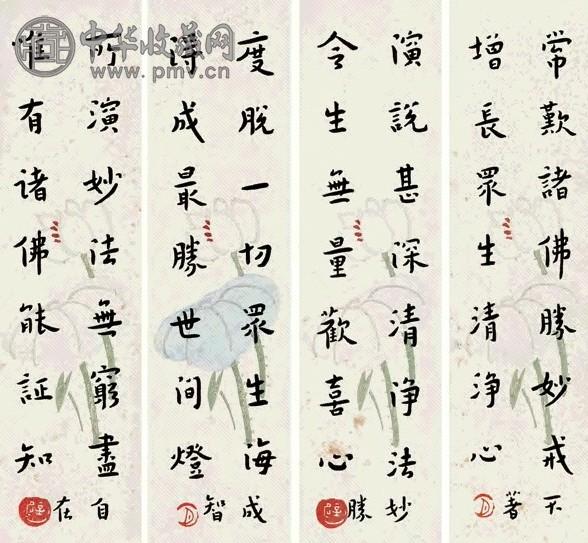 中华收藏网
www.pmv.cn
常歎諸佛勝妙戒
增長眾生清淨心
不著
演說甚深清淨法
令生無量歡喜心
妙勝
度脫一切眾生海
得成最勝世間燈
成智
所演妙法無窮盡
惟有諸佛能証知
自在